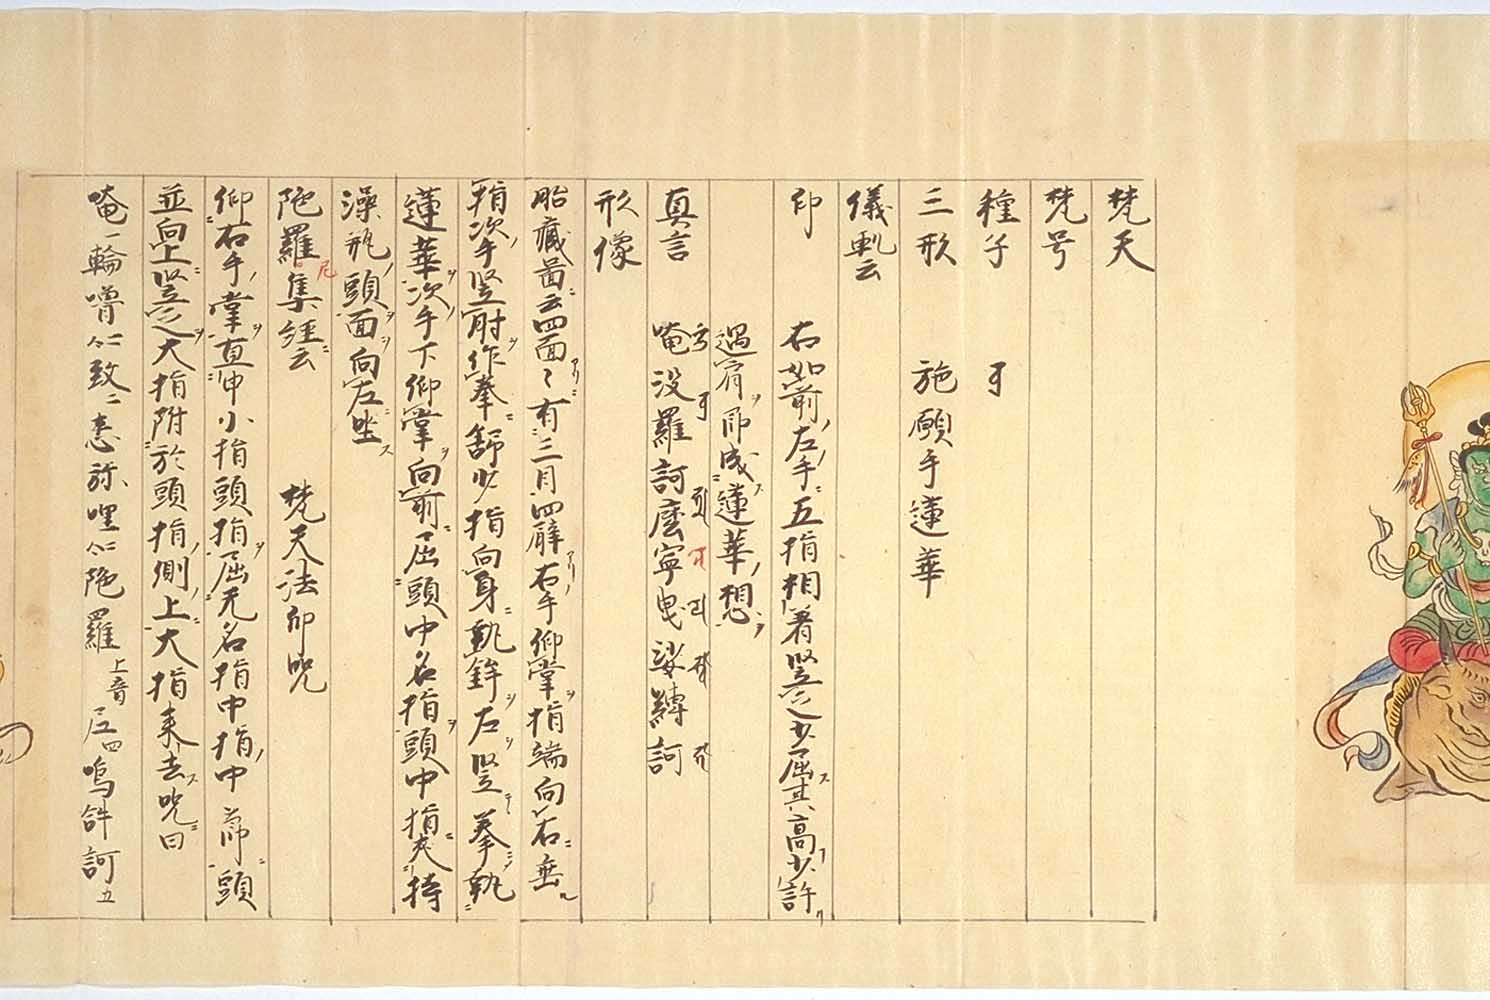 梵天
梵号
種子
三形 施願手蓮華
儀軌云
印 右如前左手五指相著竪之少屈其高少許
過肩即成蓮華想
真言 唵没羅訶麼寧曳娑縛訶
形像
胎蔵啚云四面々有三目四臂右手仰掌指端向右垂
指次手竪肘作拳舒少指向身執鉾左竪拳執
蓮華次手下仰掌向前屈頭中名指頭中指夾持
澡瓶頭面向左坐
陁羅尼集経云 梵天法印呪
仰右手掌直申小指頭指屈无名指中指中節頭
並向上竪之大指附於頭指側上大指来去呪曰
唵一輪嚕 致二 弥哩 陁羅上音 四嗚 訶五